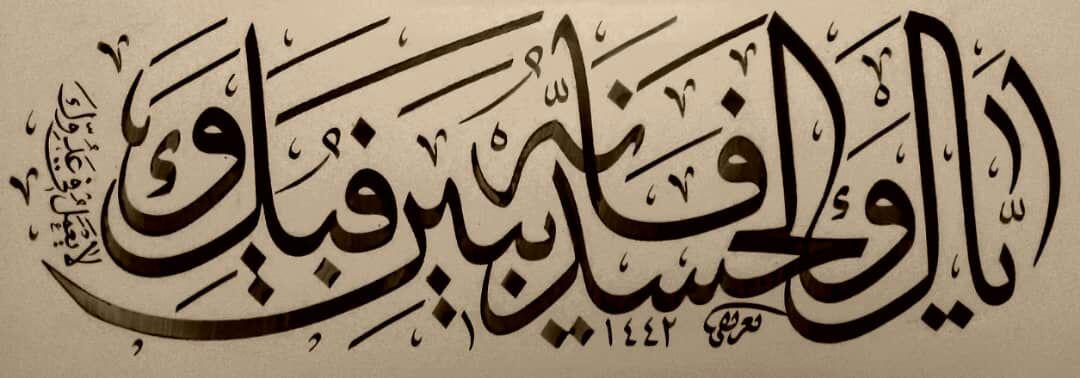 إيّاك والحسد فانّه يبين فيك و
لا يعمل في عدوّك
١٤٤٢